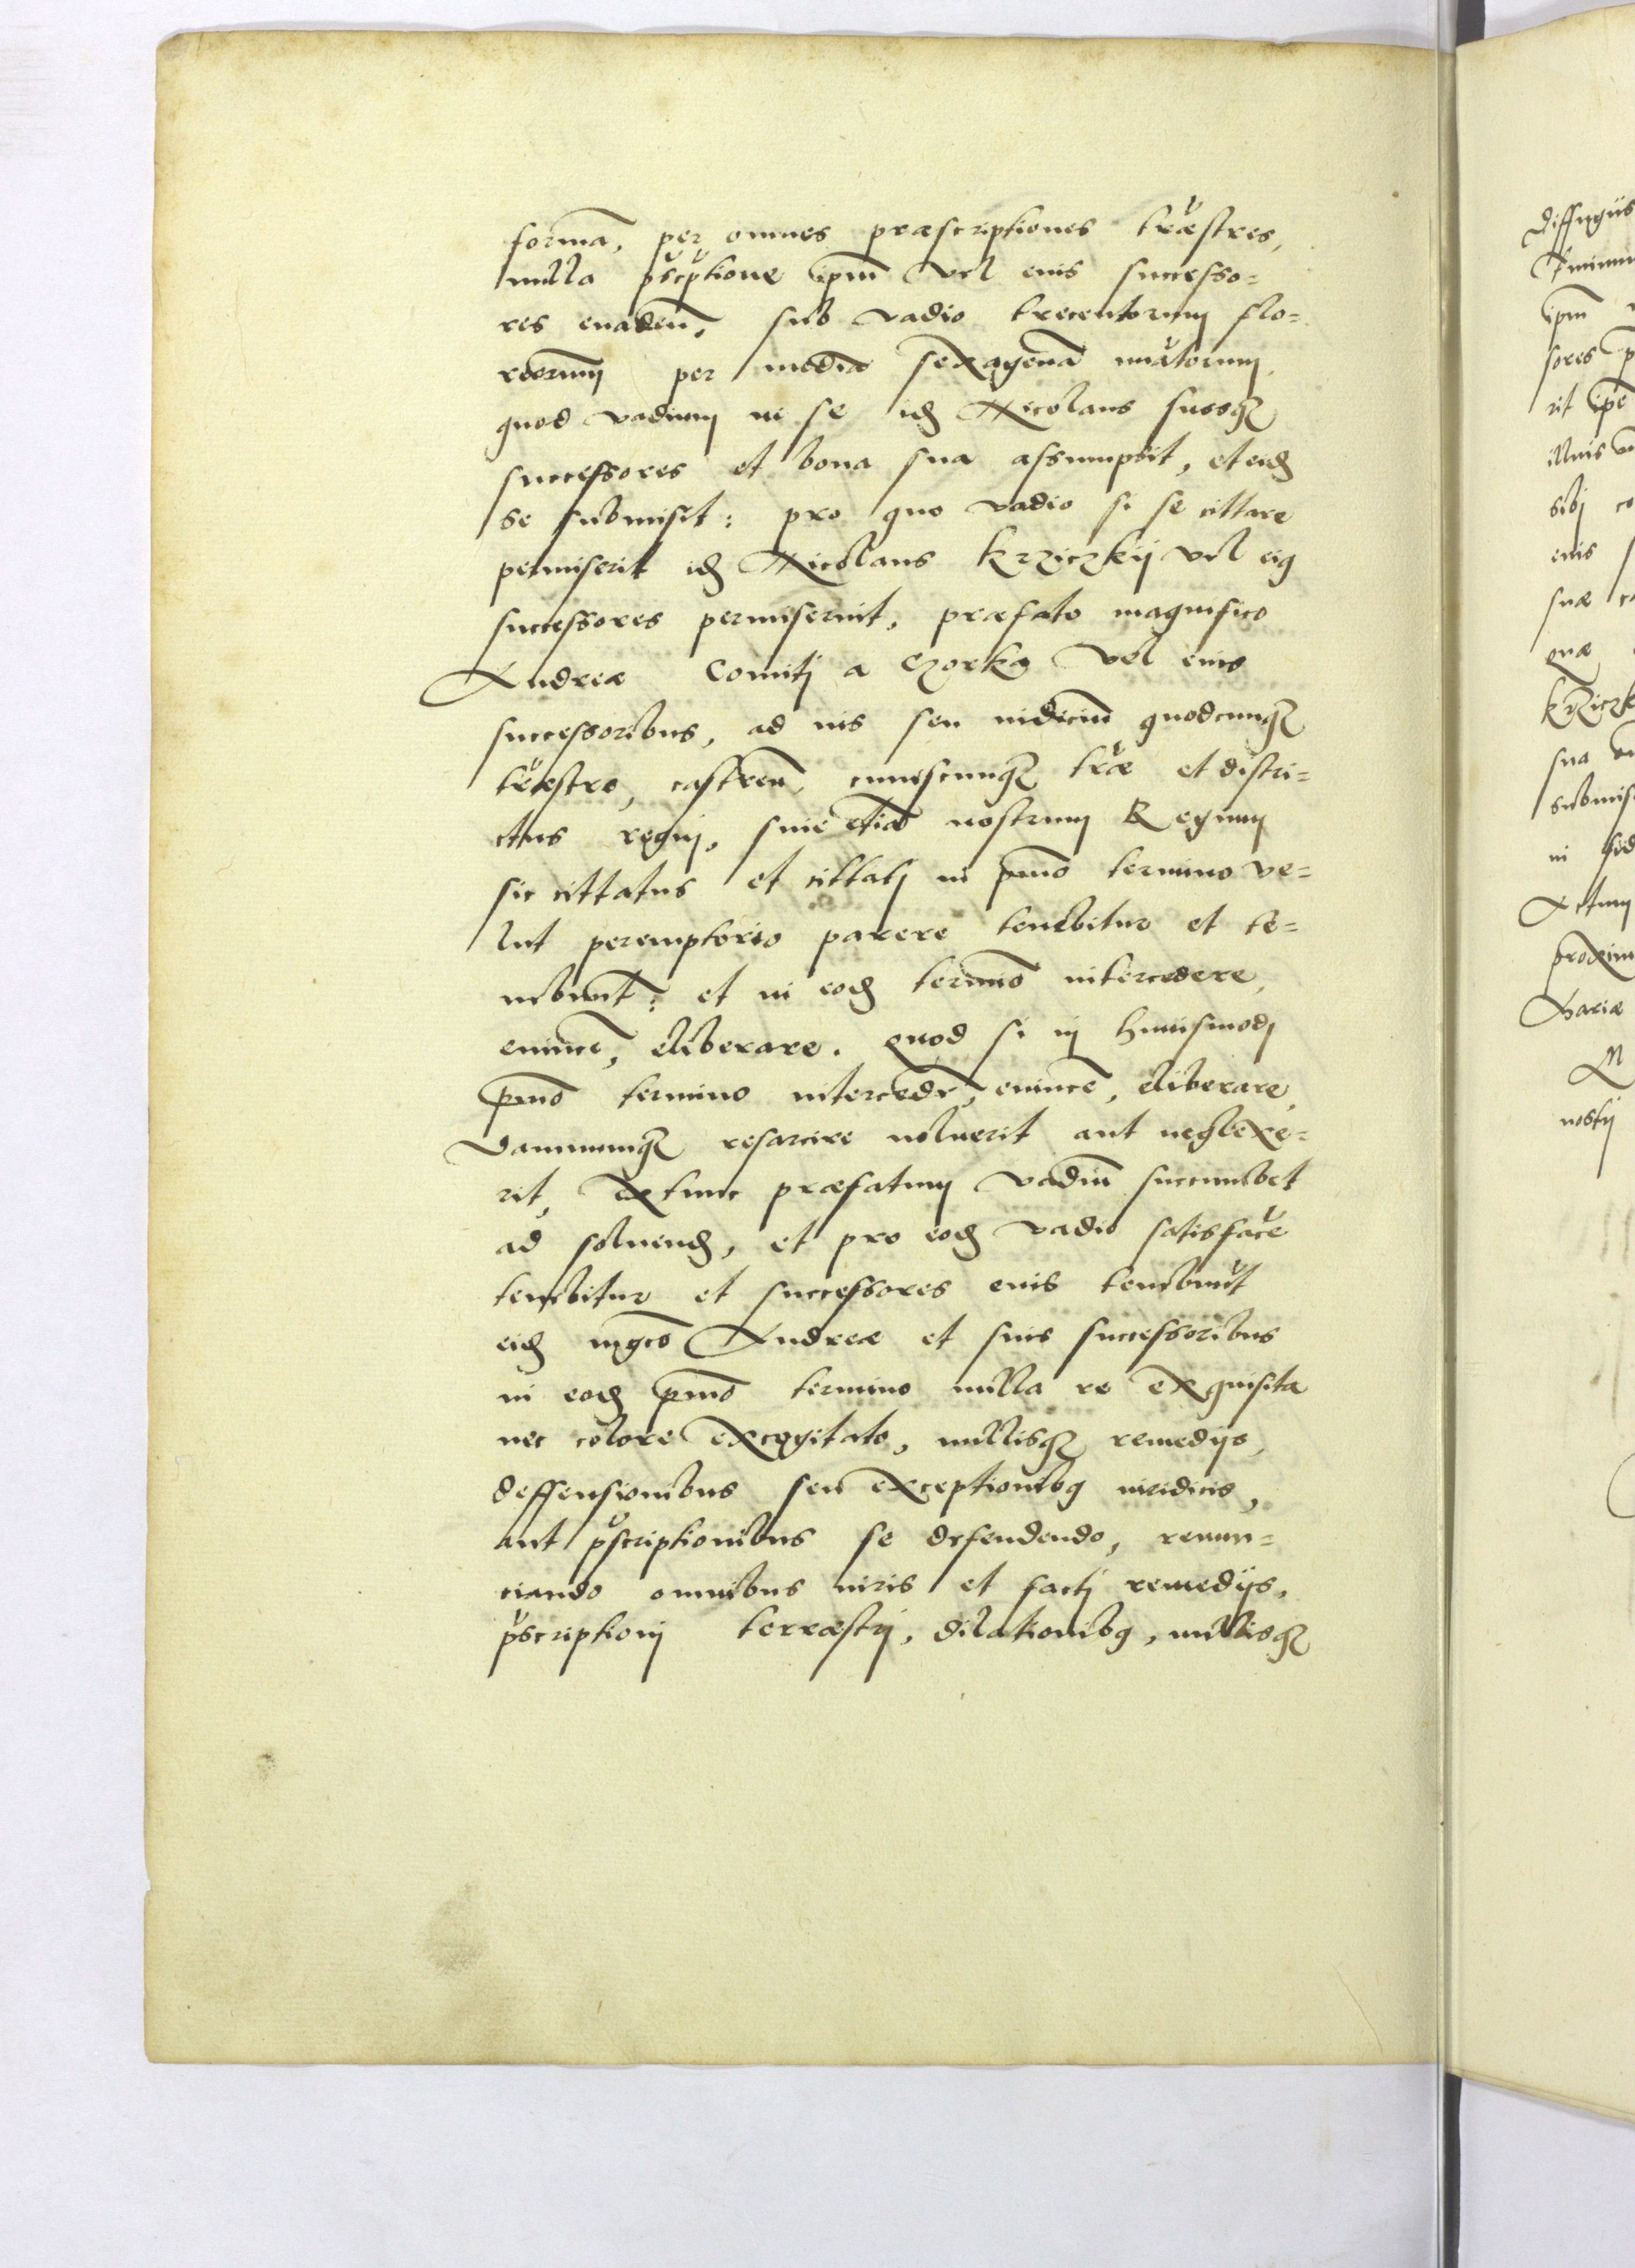 formã, per omnes præscriptiones træstres,
nulla pscptione ipm vel eius successo=
res evaden̄, sub vadio trecentorum flo=
renorum per mediã sexagenã nuãtorum,
quod vadium in se id Nicolaus suosq
successores et bona sua assumpsit, et eid
se submisit: pro quo vadio si se cittare
permiserit id Nicolaus Krziczkij vel eig
successores permiserint, præfato magnifico
Andreæ Comitj a Gorka vel eius
successoribus, ad ius seu iudiciũ quodcunq
træstre, castren̄, cuiuscunq træ et distri=
ctus regnj, siue etiã nostrum Regium
sic cittatus et cittatj in pmo termino ve=
lut peremptorio parere tenebitur et te=
nebunt: et in eod termiõ intercedere,
euince, eliberare. quod si in huiusmodj
pmo termino intercedr, euincẽ, eliberare,
damnumq resarcire noluerit aut neglexe=
rit, extunc præfatum vadiũ succumbet
ad soluend, et pro eod vadio satisface
tenebitur et successores eius tenebunt
eid mgco Andreæ et suis successoribus
in eod pmo termino nulla re exquisita
nec colore excogitato, nullisq remedijs,
deffensionibus seu exceptionibg iuridicis,
aut pscriptionibus se defendendo, renun=
ciando omnibus iuris et factj remedijs,
pscriptionj terræstrj, dilationibg, nullisq
diffugiis
ipm
sores
rit ipe
illius
sibj co
eius
suæ
quæ
Krziczk
sua
submis
in
Actum
proxim
chariæ
M
nostrj